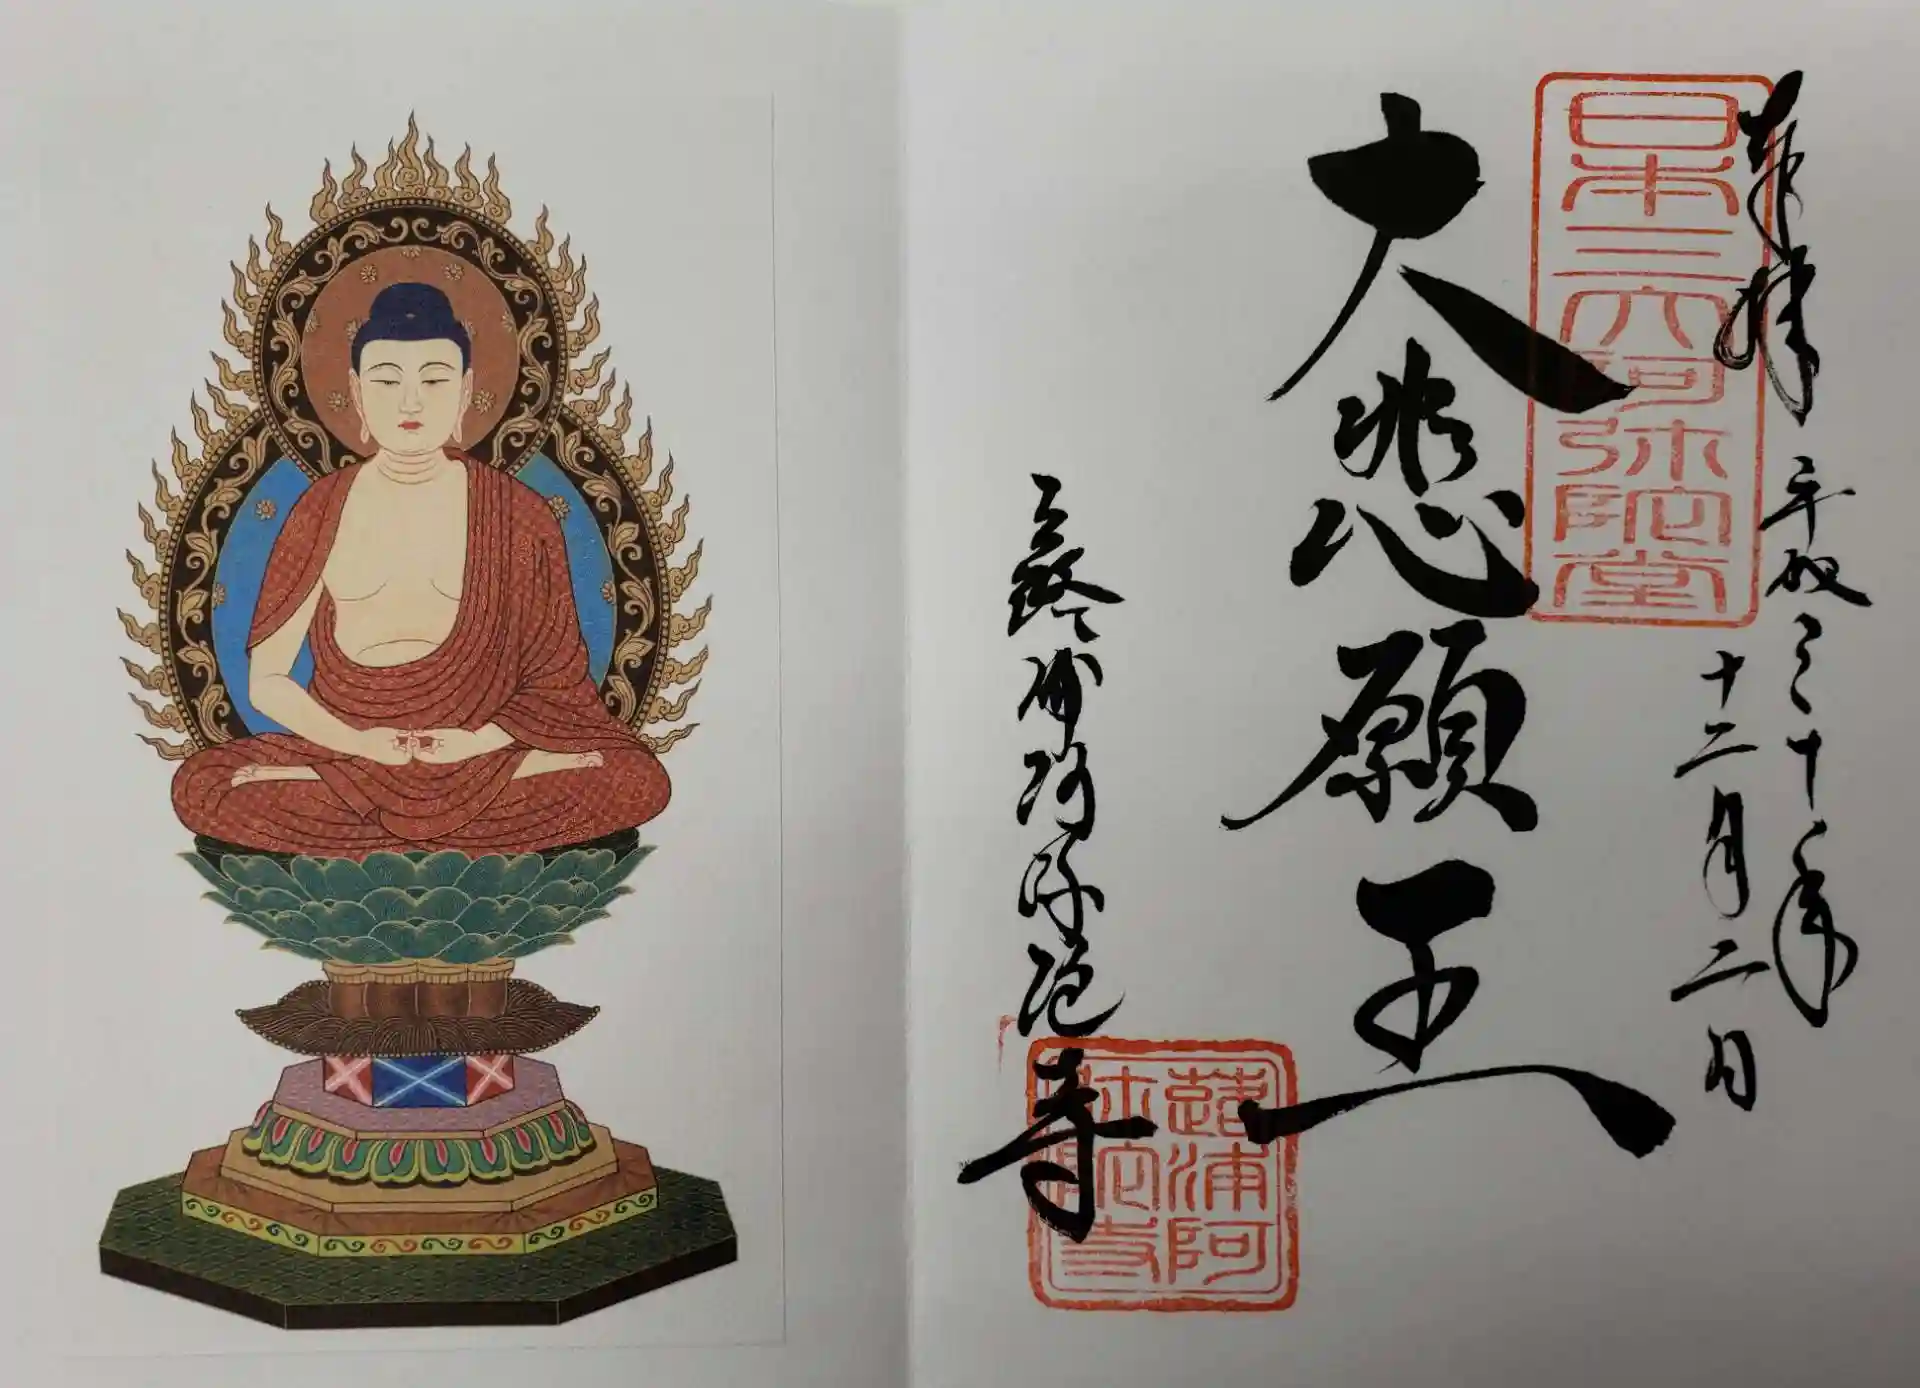 奉拝 平成三十年
十二月二日
日本三六阿弥陀堂
大悲願王
蕗浦阿弥陀寺
蕗浦阿
弥陀寺